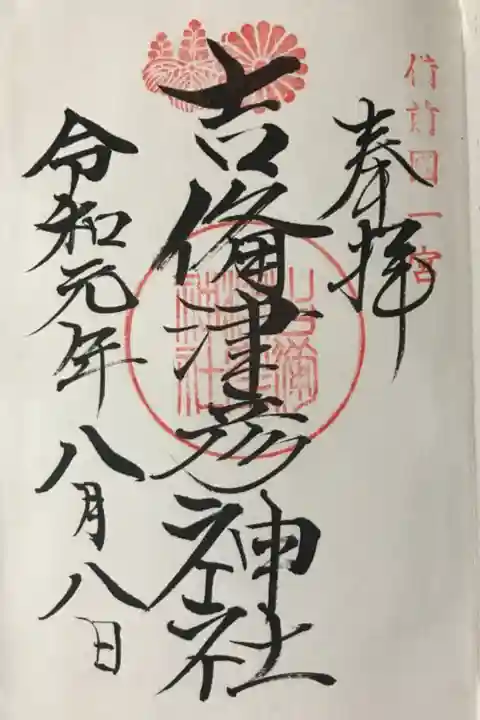 備前國一宮
奉拝
吉備津彦神社
令和元年八月八日
吉備
神社